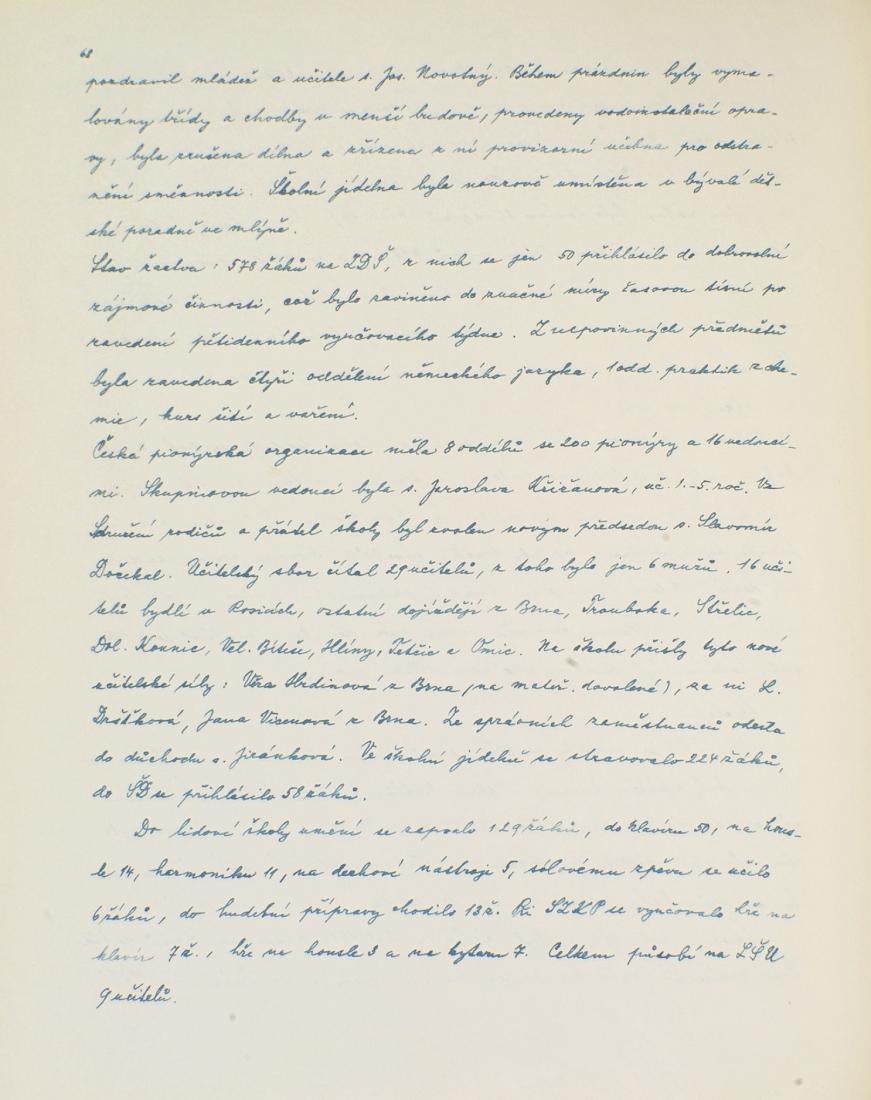 68
pozdravil mládež a učitele s. Jos. Novotný. Během prázdnin byly vyma-
lovány třídy a chodby v menší budově, provedeny vodoinstalační opra-
vy, byla zrušena dílna a zřízena z ní provizorní učebna pro odstra-
nění směnnosti. Školní jídelna byla nouzově umístěna v bývalé dět-
ské poradně ve mlýně.
Stav žactva: 578 žáků na ZDŠ, z nich se jen 50 přihlásilo do dobrovolné
zájmové činnosti, což bylo zaviněno do značné míry časovou tísní po
zavedení pětidenního vyučovacího týdne. Z nepovinných předmětů
byla zavedena čtyři oddělení německého jazyka, 1 odd. praktik z che-
mie, kurs šití a vaření.
Česká pionýrská organizace měla 8 oddílů se 200 pionýry a 16 vedoucí-
mi. Skupinovou vedoucí byla s. Jaroslava Křižanová, uč. 1.-5. roč. Ve
Sdružení rodičů a přátel školy byl zvolen novým předsedou s. Slavomír
Dočekal. Učitelský sbor čítal 29 učitelů, z toho bylo jen 6 mužů. 16 uči-
telů bydlí v Rosicích, ostatní dojíždějí z Brna, Troubska, Střelic,
Dol. Kounic, Vel. Bíteše, Hlíny, Tetčic a Omic. Na školu přišly tyto nové
učitelské síly: Věra Hrdinová z Brna (na mateř. dovolené), za ni L.
Drštková, Jana Vicenová z Brna. Ze správních zaměstnanců odešla
do důchodu s. Jiránková. Ve školní jídelně se stravovalo 224 žáků,
do ŠD se přihlásilo 58 žáků.
Do lidové školy umění se zapsalo 129 žáků, do klavíru 50, na hous-
le 14, harmoniku 11, na dechové nástroje 5, sólovému zpěvu se učilo
6 žáků, do hudební přípravy chodilo 13 ž. Při se vyučovalo hře na
klavír 7 ž., hře na housle 3 a na kytaru 7. Celkem působí na LŠU
9 učitelů.